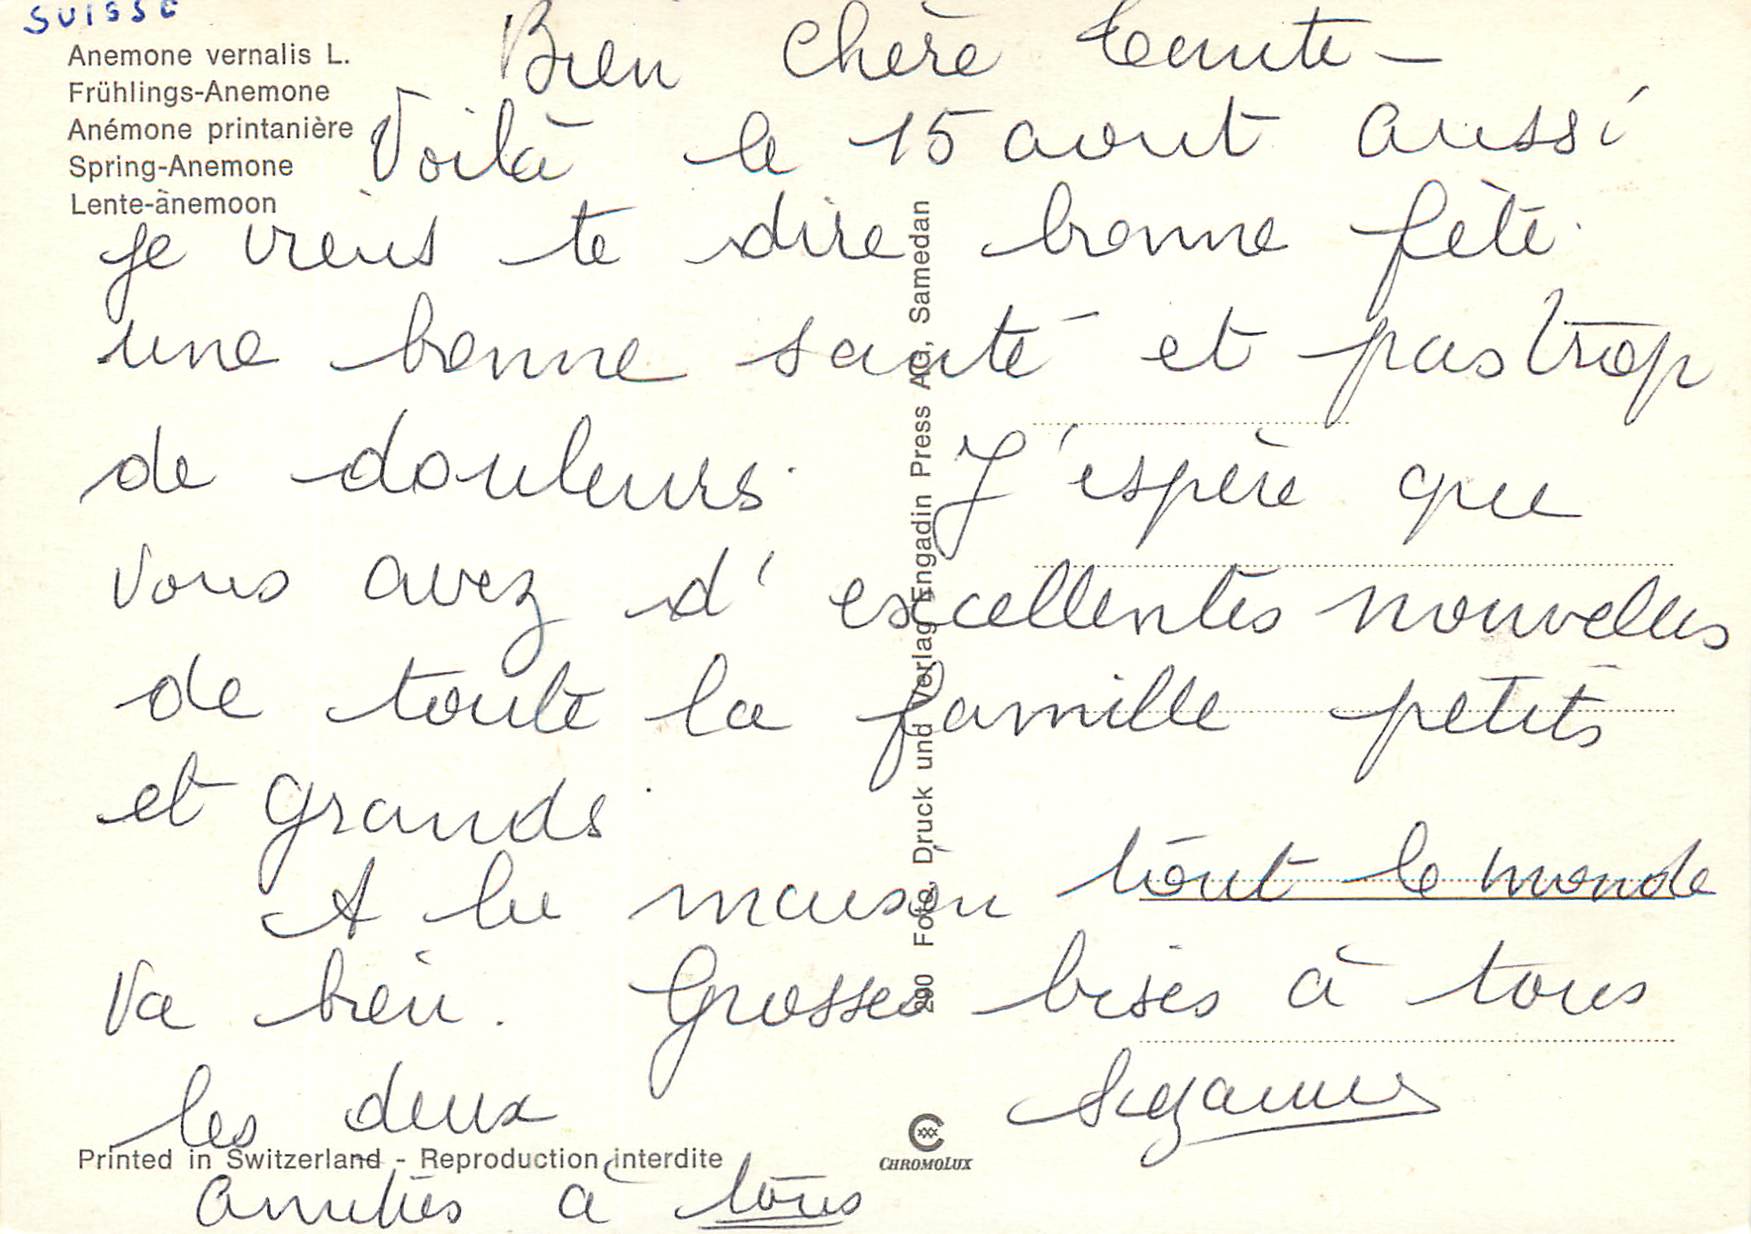 SUISSE
Anemone vernalis L.
Frühlings-Anemone
Anémone printanière
Spring-Anemone
Lente-änemoon
Bien chère Tante -
Voilà le 15 aout aussi
je viens te dire bonne fête.
une bonne santé et pas trop
de douleurs. J'espère que
vous avez d'excellentes nouvelles
de toute la famille petits
et grands.
A la maison tout le monde
va bien. Grosses bises à tous
les deux
Suzanne
amitiés à tous
290 Foto, Druck und Verlag Engadin Press AG, Samedan
Printed in Switzerland - Reproduction interdite
CHROMOLUX